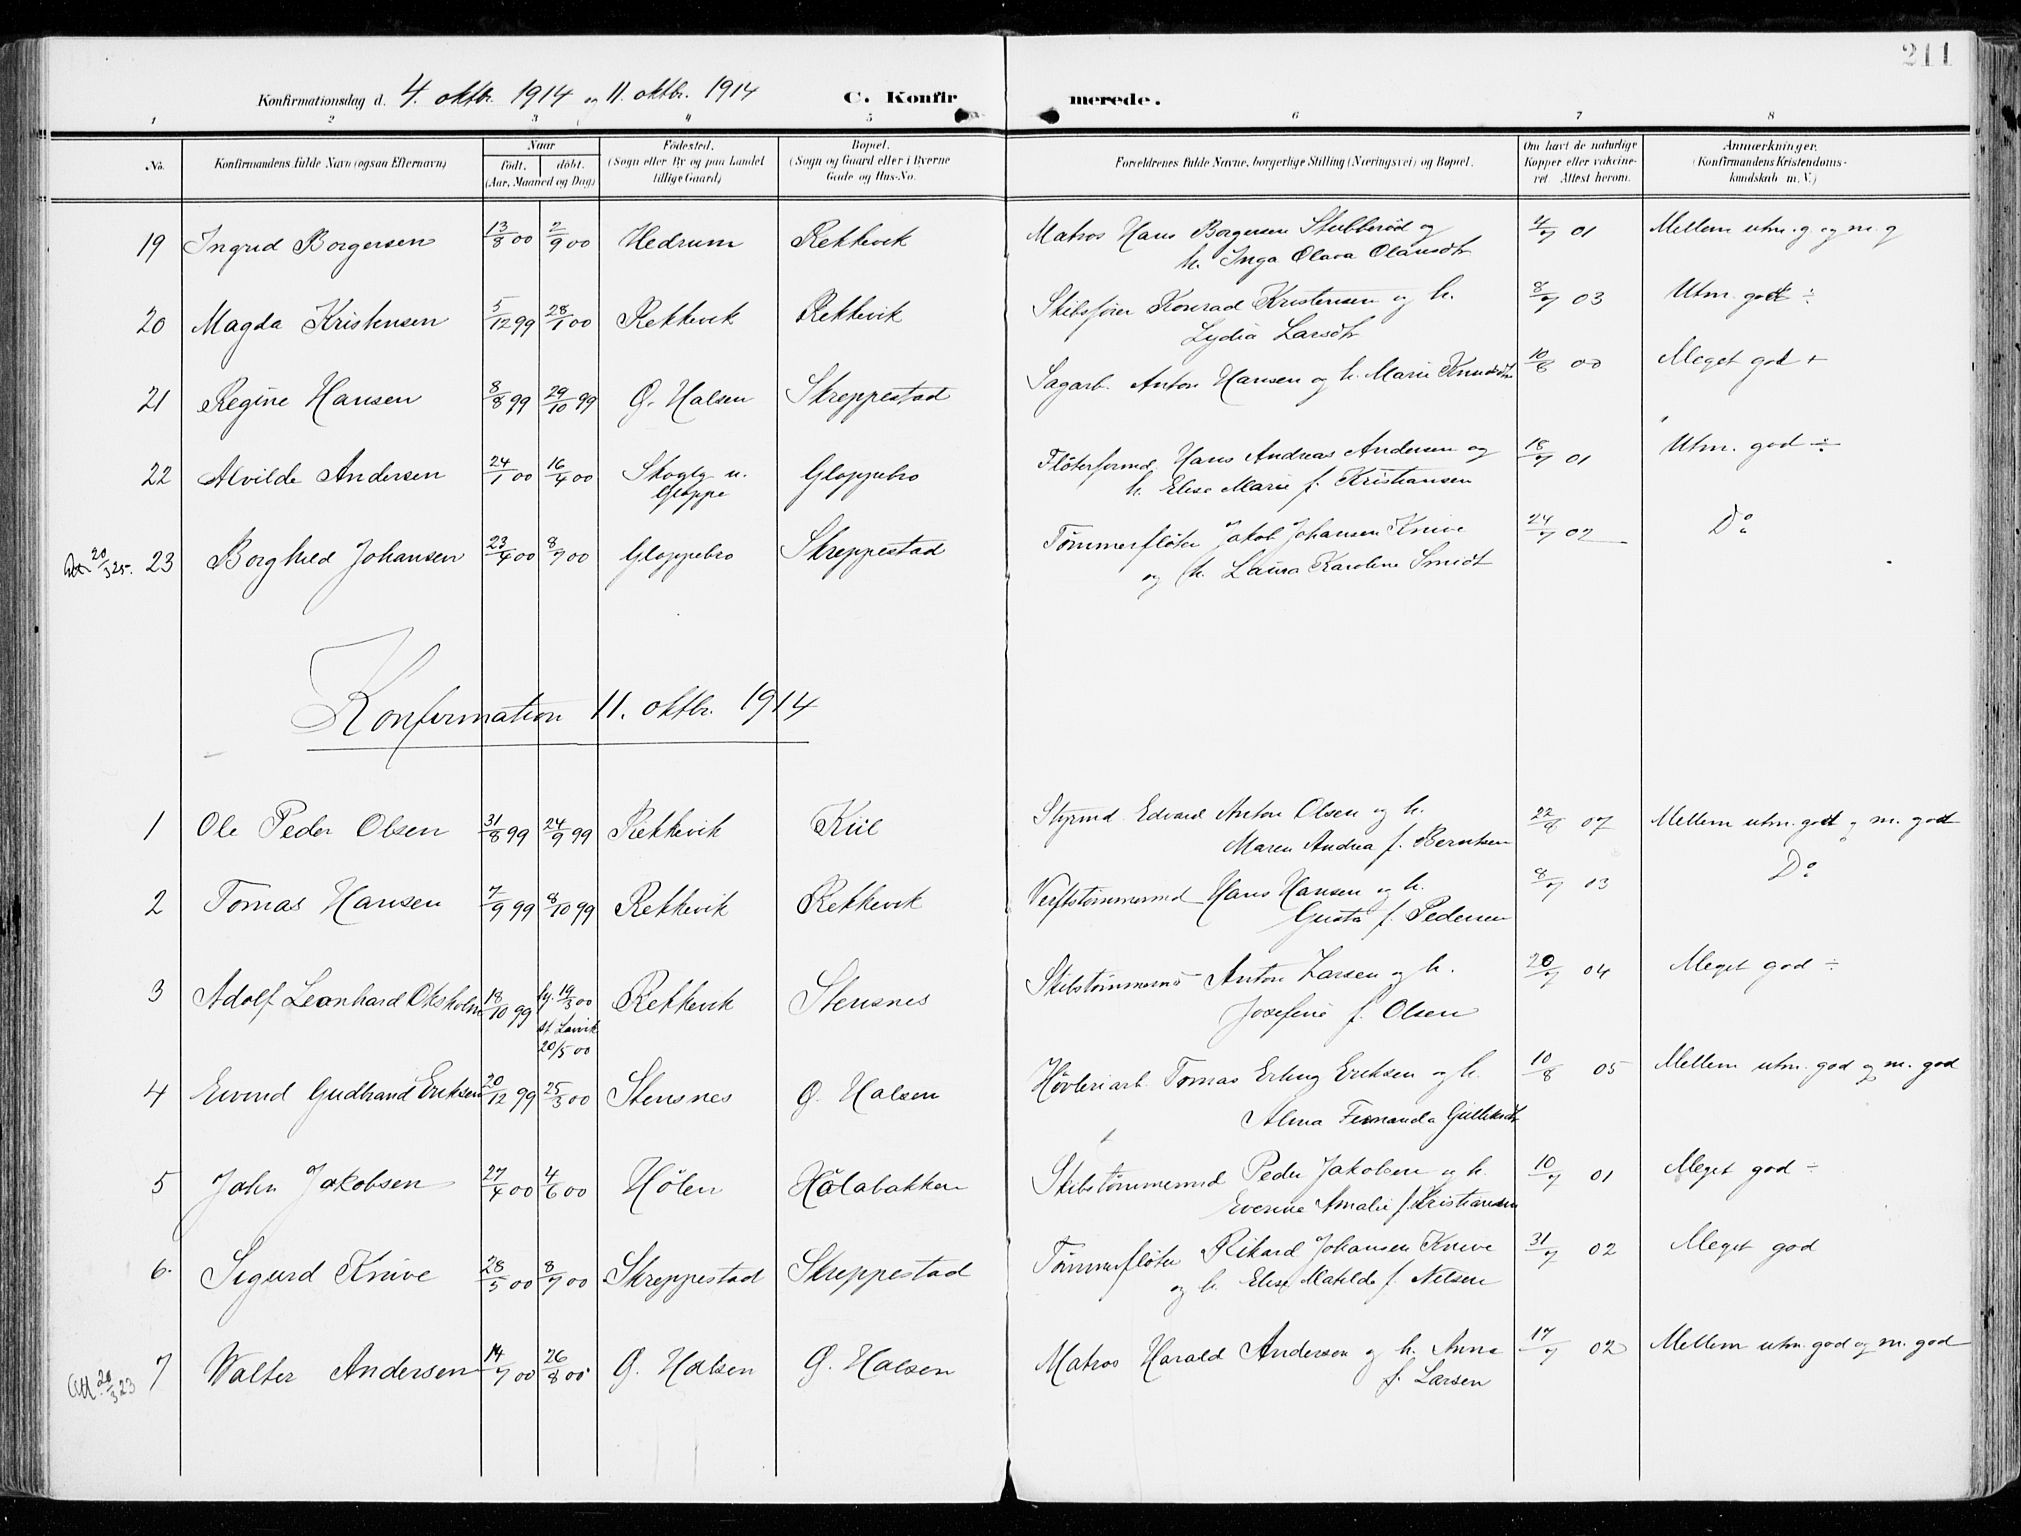 211
Konfirmationsdag d. 4. oktbr. 1914 og 11. oktbr. 1914 C. Konfirmerede.
1 2 3 4 5 6 7 8
No. Konfirmandens fulde Navn (ogsaa Efternavn) Naar født. døbt. (Aar, Maaned og Dag) Fødested. (Sogn eller By og paa Landet tillige Gaard) Bopæl. (Sogn og Gaard eller i Byerne Gade og Hus-No. Forældrenes fulde Navne, borgerlige Stilling (Næringsvei) og Bopæl. Om havt de naturlige Kopper eller vakcineret. Attest herom. Anmærkninger. (Konfirmandens Kristendomskundskab m. V.)
19 Ingrid Borgersen 13/8 00 2/9 00 Hedrum Rekkevik Matros Hans Borgersen Stubberød og 4/7 01 Mellem utm. g og m. g
h. Inga Olava Olausdtr
20 Magda Kristensen 5/12 99 28/1 00 Rekkevik Rekkevik Skibsfører Konrad Kristensen og h. 8/7 03 Utm. godt ÷
Lydia Larsdtr
21 Regine Hansen 8/8 99 29/10 99 Ø. Halsen Skreppestad Sagarb. Anton Hansen og h. Marie Knudsdtr 10/8 00 Meget god +
22 Alvilde Andersen 24/1 00 16/4 00 Skogly u. Gloppe Gloppebro Fløterformd. Hans Andreas Andersen og 18/7 01 Utm. god ÷
h. Elise Marie f. Kristiansen
Att 20/3 25. 23 Borghild Johansen 23/4 00 8/7 00 Gloppebro Skreppestad Tømmerfløter Jakob Johansen Knive 24/7 02 Do
og h. Laura Karoline Smidt
Konfirmation 11. oktbr. 1914
1 Ole Peder Olsen 31/8 99 24/9 99 Rekkevik Kiil Styrmd. Edvard Anton Olsen og h. 22/8 07 Mellem utm. godt og m. godt
Maren Andrea f. Berntsen
2 Tomas Hansen 7/9 99 8/10 99 Rekkevik Rekkevik Verftstømmermd Hans Hansen og h. 8/7 03 Do
Gusta f. Pedersen
3 Adolf Leonhard Oksholm 18/10 99 hj. 19/3 00 st. Larvik 20/5 00 Rekkevik Stensnes Skibstømmermd Anton Larsen og h. 20/7 04 Meget god ÷
Josefine f. Olsen
4 Eivind Gudbrand Eriksen 20/12 99 25/3 00 Stensnes Ø. Halsen Høvleriarb. Tomas Erling Eriksen og h. 10/8 05 Mellem utm. god og m. god
Alma Fernanda Gulliksdtr
5 John Jakobsen 27/4 00 4/6 00 Hølen Hølabakken Skibstømmermd Peder Jakobsen og h. 10/7 01 Meget god ÷
Everine Amalie f. Kristiansen
6. Sigurd Knive 28/5 00 8/7 00 Skreppestad Skreppestad Tømmerfløter Rikard Johansen Knive 31/7 02 Meget god
og h. Elise Matilde f. Nilsen
Att. 20/3 23 7 Walter Andersen 14/7 00 26/8 00 Ø. Halsen Ø. Halsen Matros Harald Andersen og h. Anna 17/7 02 Mellem utm. god og m. god
f. Larsen